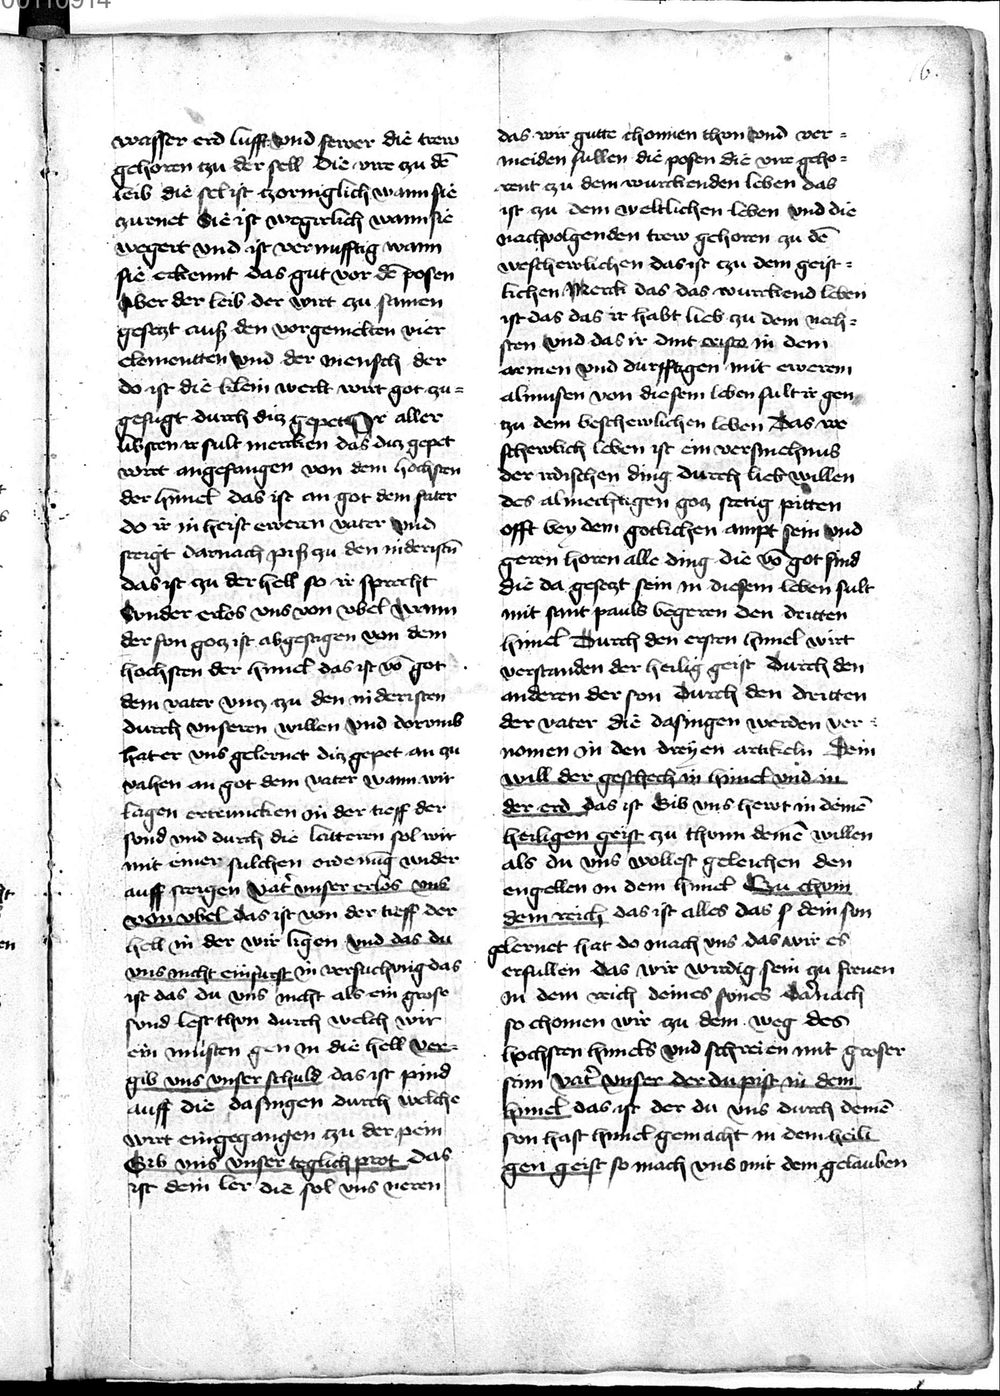 00110914
6.
wasser erd lufft vnd fewer die trew
gehoren tzu der sell Die vire zu dē
leib die sel ist tzorniglich wann sie
zurnet Sie ist wegirlich wann sie
wegert vnd ist vernufftig wann
sie erkennt das gut vor dē posen
Aber der leib der wirt zu samen
gesetzt auß den vorgemelten vier
elementten vnd der mensch der
do ist die klein werlt wirt got zu=
gefugt durch ditz gepet Ir aller
libsten ir sult mercken das ditz gepet
wirt angefangen von dem hochsten
der himel das ist an got dem vater
do ir in heist eweren vater vnd
steigt darnach piß zu den nideristn̄
das ist zu der hell so ir sprecht
Sunder erlos vns von vbel Wann
der sun gotz ist abgestigen von dem
hochsten der himel das ist vō got
dem vater vntz zu den nideristen
durch vnseren willen vnd dorvmb
hat er vns gelernet ditz gepet an zu
vahen an got dem vater wann wir
lagen ertruncken in der tieff der
sund vnd durch die laitteren sol wir
mit einer sulchen ordenūg wider
auff steigen Vat̄ vnser erlos vns
von vbel das ist von der tieff der
hell in der wir ligen vnd das du
vns nicht einfurst in versuchūg das
ist das du vns nicht als ein grose
sund lest thun durch welch wir
ein musten gen in die hell Ver=
gib vns vnser schuld das ist pind
auff die dasingen durch welche
wirt eingegangen tzu der pein
Gib vns vnser teglich prot das
ist dein ler die sol vns neren
das wir gutte chonnen thun vnd ver=
meiden sullen die posen die vire geho=
rent zu dem wurckenden leben das
ist zu dem weltlichen leben vnd die
nachvolgenden trew gehoren zu dē
weschewlichen das ist tzu dem geist=
lichen Merck das das wurckend leben
ist das das ir habt lieb zu dem nech=
sten vnd das ir dint cristo in dem
armen vnd durfftigen mit ewerem
almusen von diesem leben sult ir gen
tzu dem beschewlichen leben Das we
schewlich leben ist ein versmehnus
der irdischen ding durch lieb willen
des almechtigen gotz stetig pitten
offt bey dem gotlichen ampt sein vnd
geren horen alle ding die vō got sind
die da gesetzt sein in diesem leben sult
mit sant pauls begeren den dritten
himel Durch den ersten himel wirt
verstanden der heilig geist Durch den
anderen der son Durch den dritten
der vater die dasingen werden ver=
nomen in den dreyen artikeln Dein
will der geschech in himel vnd in
der erd das ist Gib vns hewt in deinē
heiligen geist zu thunn deinē willen
als du vns wollest geleichen den
engellen in dem himel Zu chum
dein reich das ist alles das s dein sun
gelernet hat do mach vns das wir es
erfullen das wir wirdig sein zu frewen
in dem reich deines sunes Darnach
so chomen wir zu dem weg des
hochsten himels vnd schreien mit groser
stim Vat̄ vnser der du pist in dem
himel das ist der du vns durch deinē
son hast himel gemacht in dem heili
gen geist so mach vns mit dem gelauben